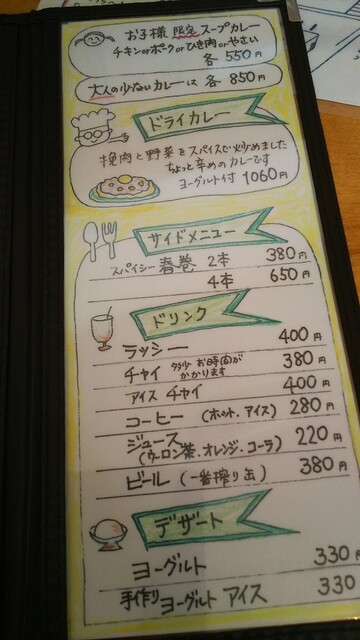 お子様 限定 スープカレー
チキンorポークorひき肉orやさい
各 550円
大人の少ないカレーは 各 850円
ドライカレー
挽肉と野菜をスパイスで炒めました
ちょっと辛めのカレーです
ヨーグルト付 1060円
サイドメニュー
スパイシー 春巻 2本 380円
4本 650円
ドリンク
ラッシー 400円
チャイ 多少お時間がかかります 380円
アイス チャイ 400円
コーヒー (ホット、アイス) 280円
ジュース 220円
(ウーロン茶、オレンジ、コーラ)
ビール (一番搾り缶) 380円
デザート
ヨーグルト 330円
手作りヨーグルト アイス 330